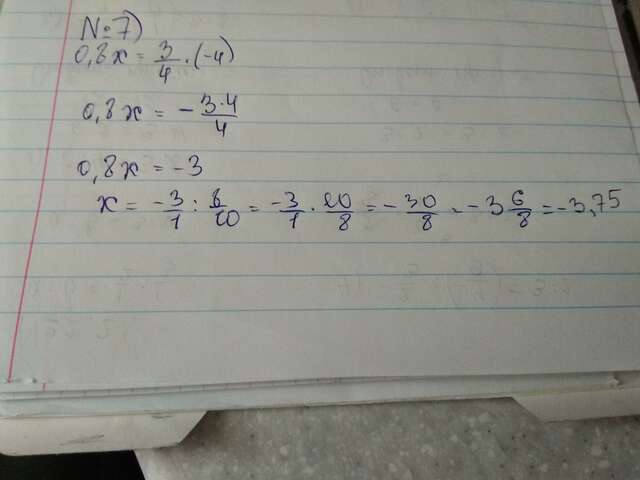 №7)
0,8x = 3/4 · (-4)
0,8x = - 3·4/4
0,8x = -3
x = -3/1 : 8/10 = -3/1 · 10/8 = - 30/8 = -3 6/8 = -3,75